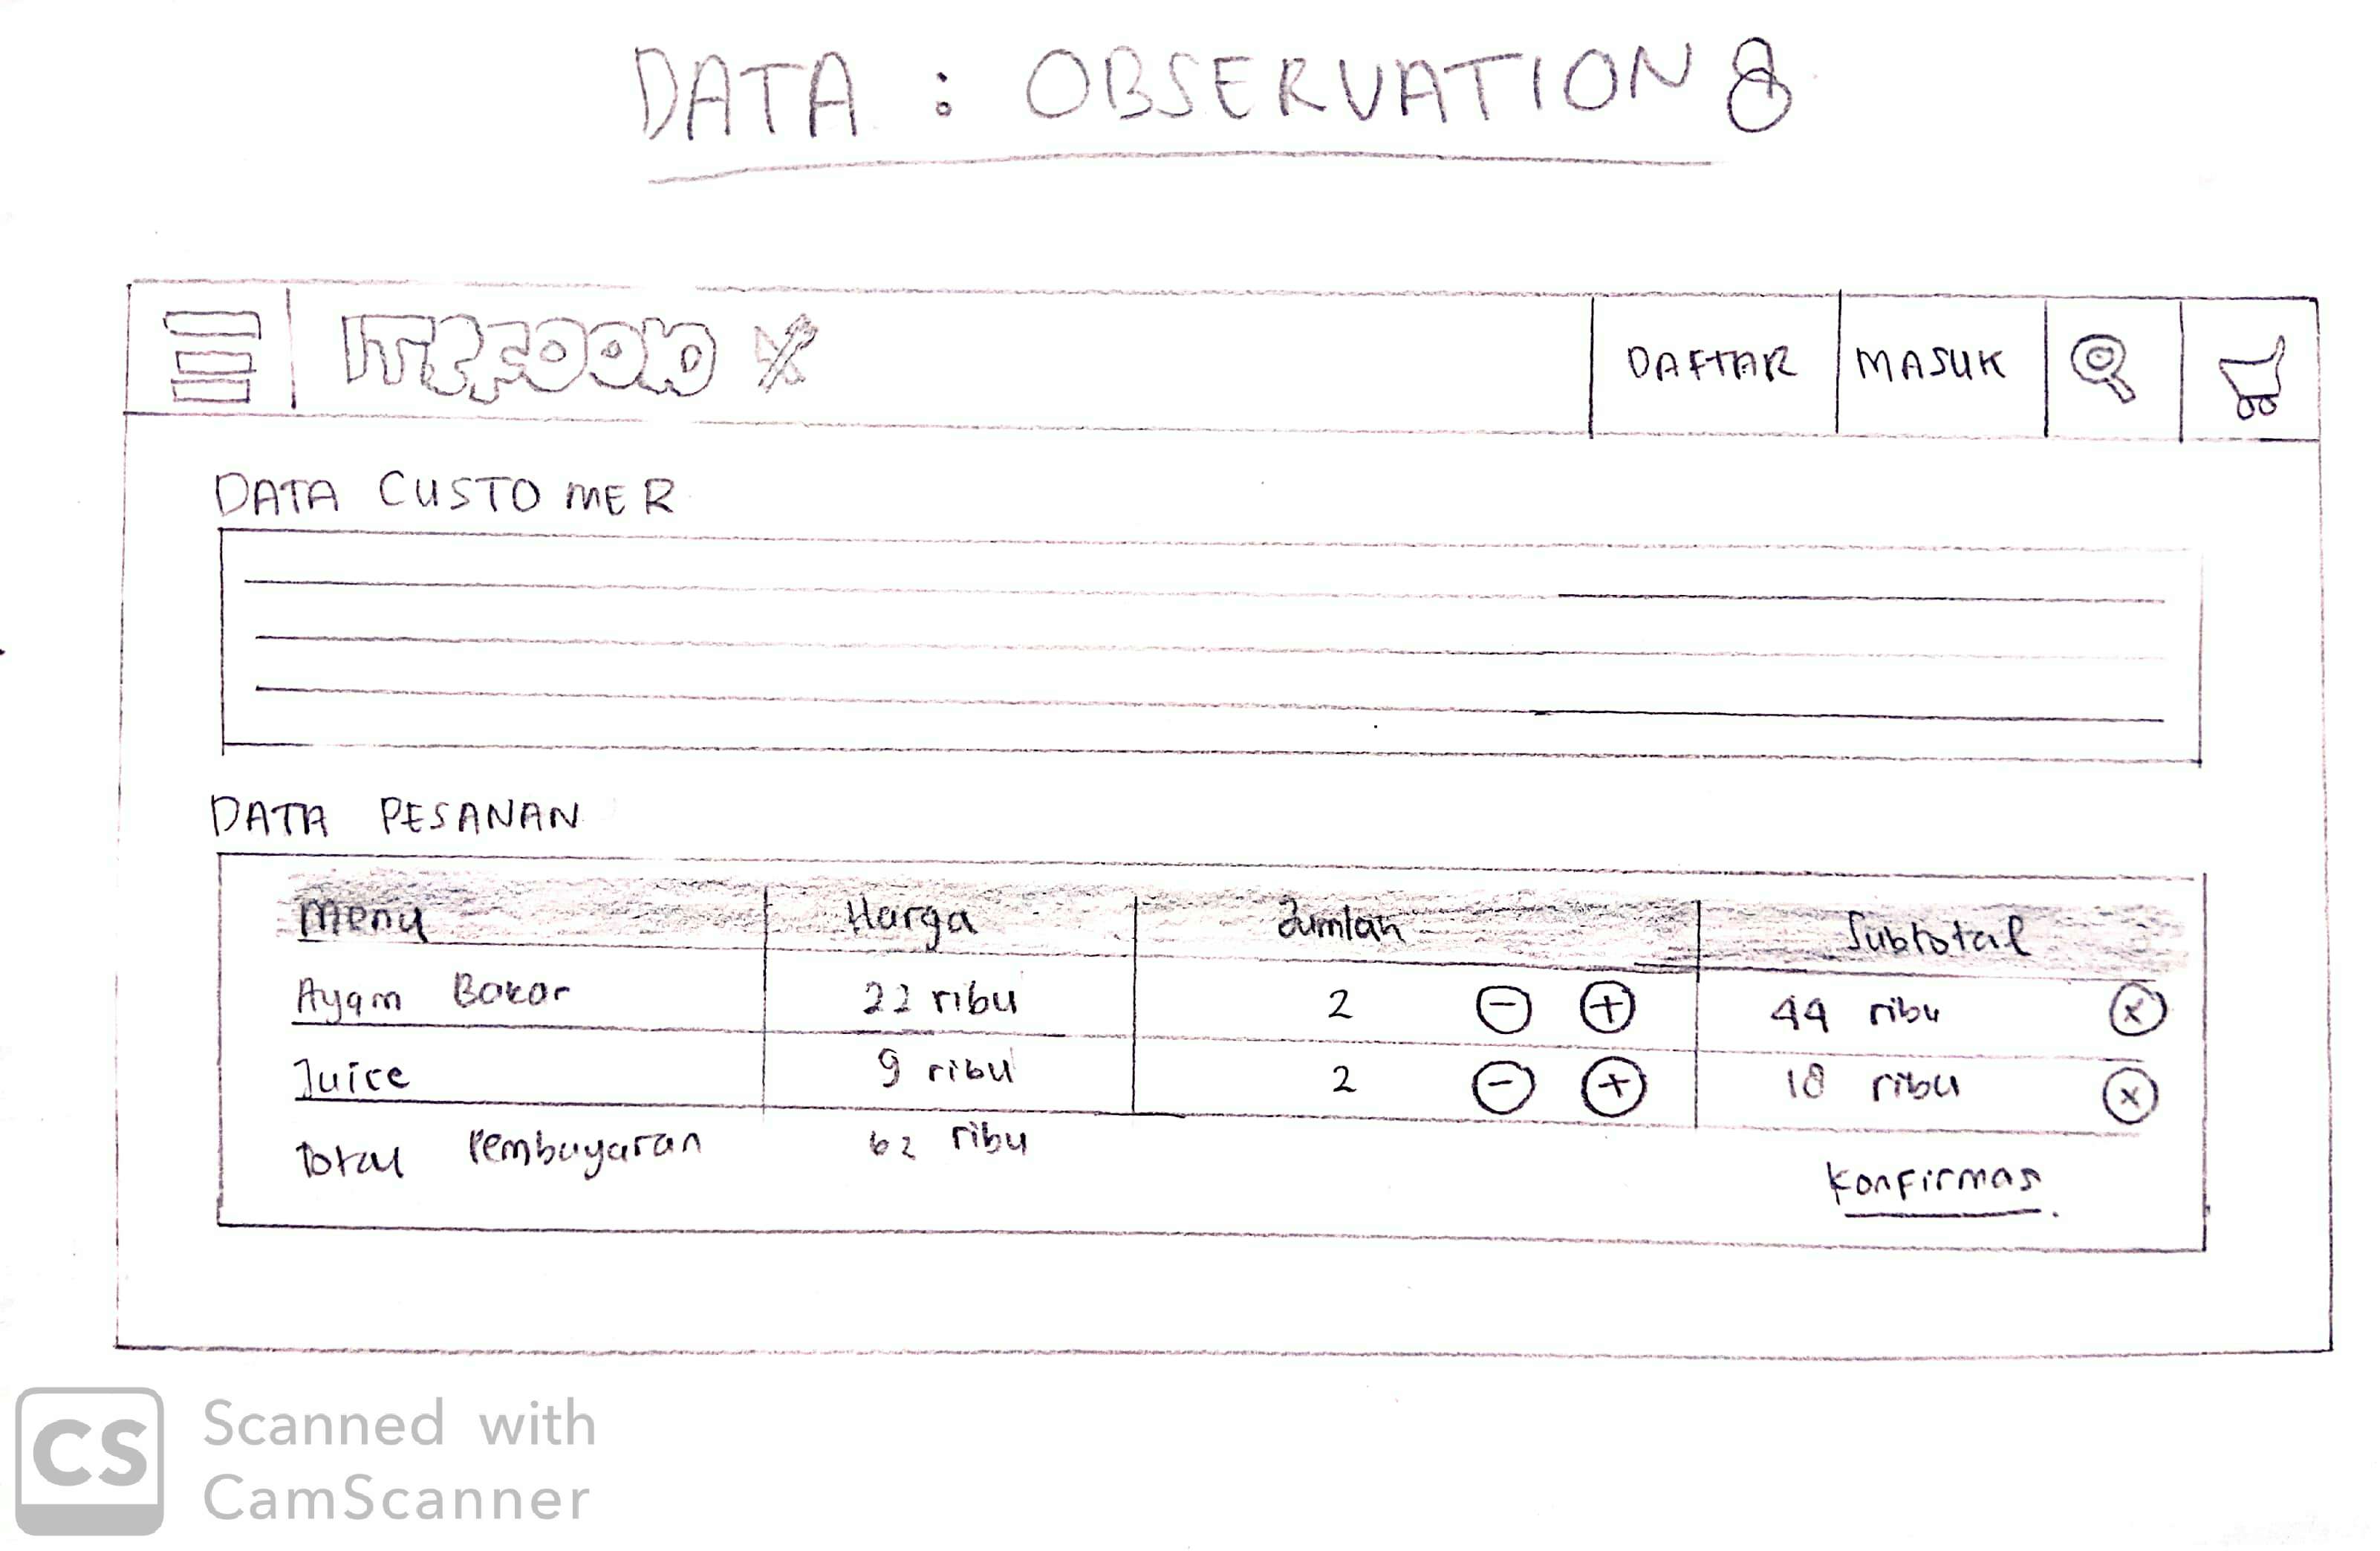 DATA : OBSERVATION 8
ITSFOOD
DAFTAR MASUK
DATA CUSTOMER
DATA PESANAN
Menu Harga Jumlah Subtotal
Ayam Bakar 22 ribu 2 - + 44 ribu x
Juice 9 ribu 2 - + 18 ribu x
Total Pembayaran 62 ribu
Konfirmasi
CS Scanned with
CamScanner